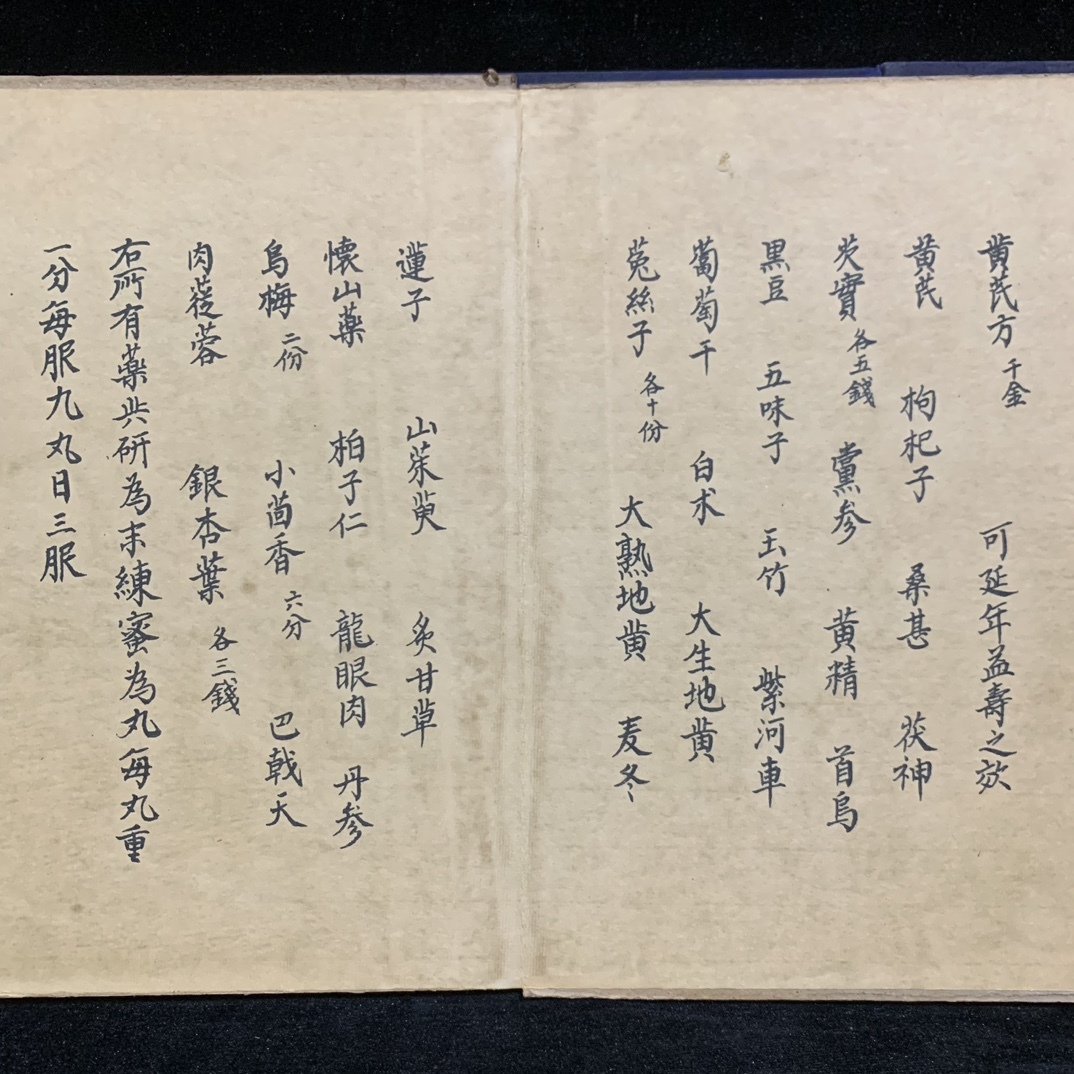 黄芪方 千金 可延年益壽之效
黄芪 枸杞子 桑葚 茯神
芡實 各五錢 黨参 黄精 首烏
黒豆 五味子 玉竹 紫河車
葡萄干 白术 大生地黄
菟絲子 各十份 大熟地黄 麦冬
蓮子 山茱萸 炙甘草
懷山藥 柏子仁 龍眼肉 丹參
烏梅 二份 小茴香 六分 巴戟天
肉蓯蓉 銀杏葉 各三錢
右所有藥共研為末練蜜為丸每丸重
一分每服九丸日三服